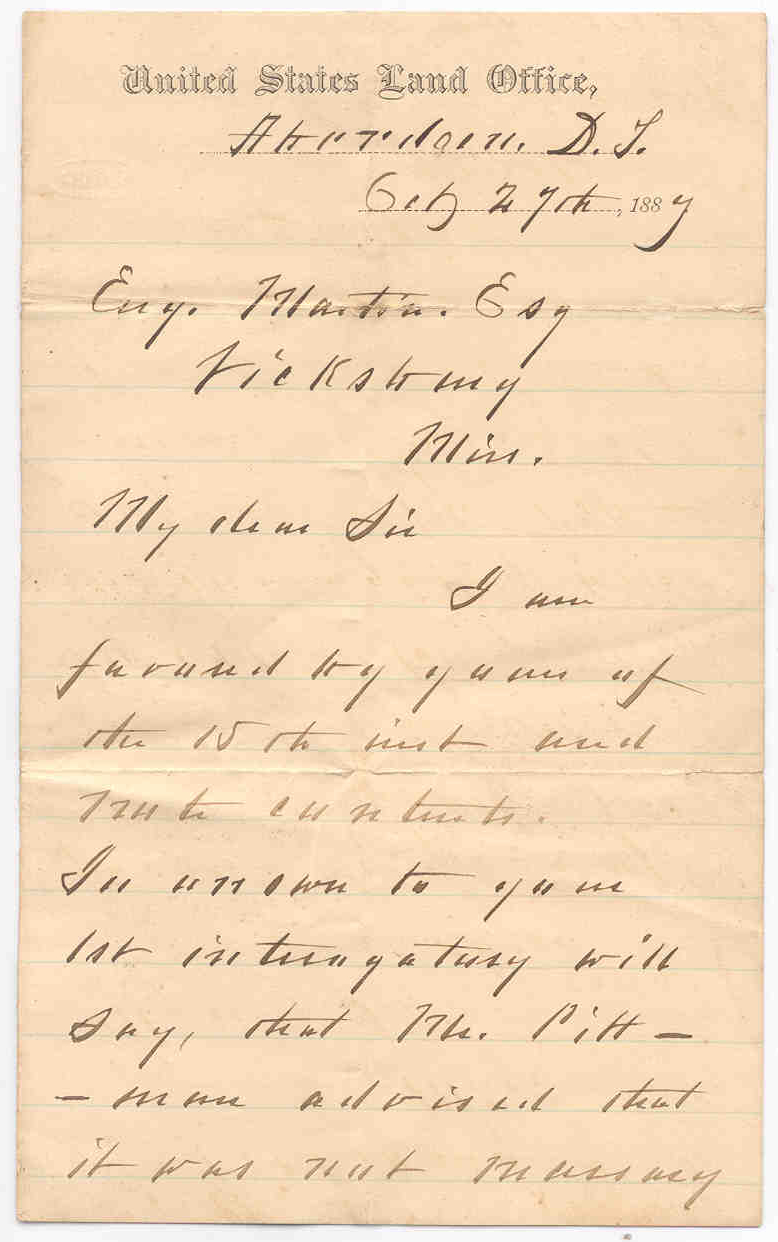 United States Land Office,
Aberdeen. D. T.
Octy 27th, 1887
Eug. Martin. Esq
Vicksburg
Miss.
My dear Sir
I am
favored by yours of
the 15th inst and
note contents.
In answer to your
1st interogatory will
say, that Mr. Pitt-
-man advised that
it was not necessary